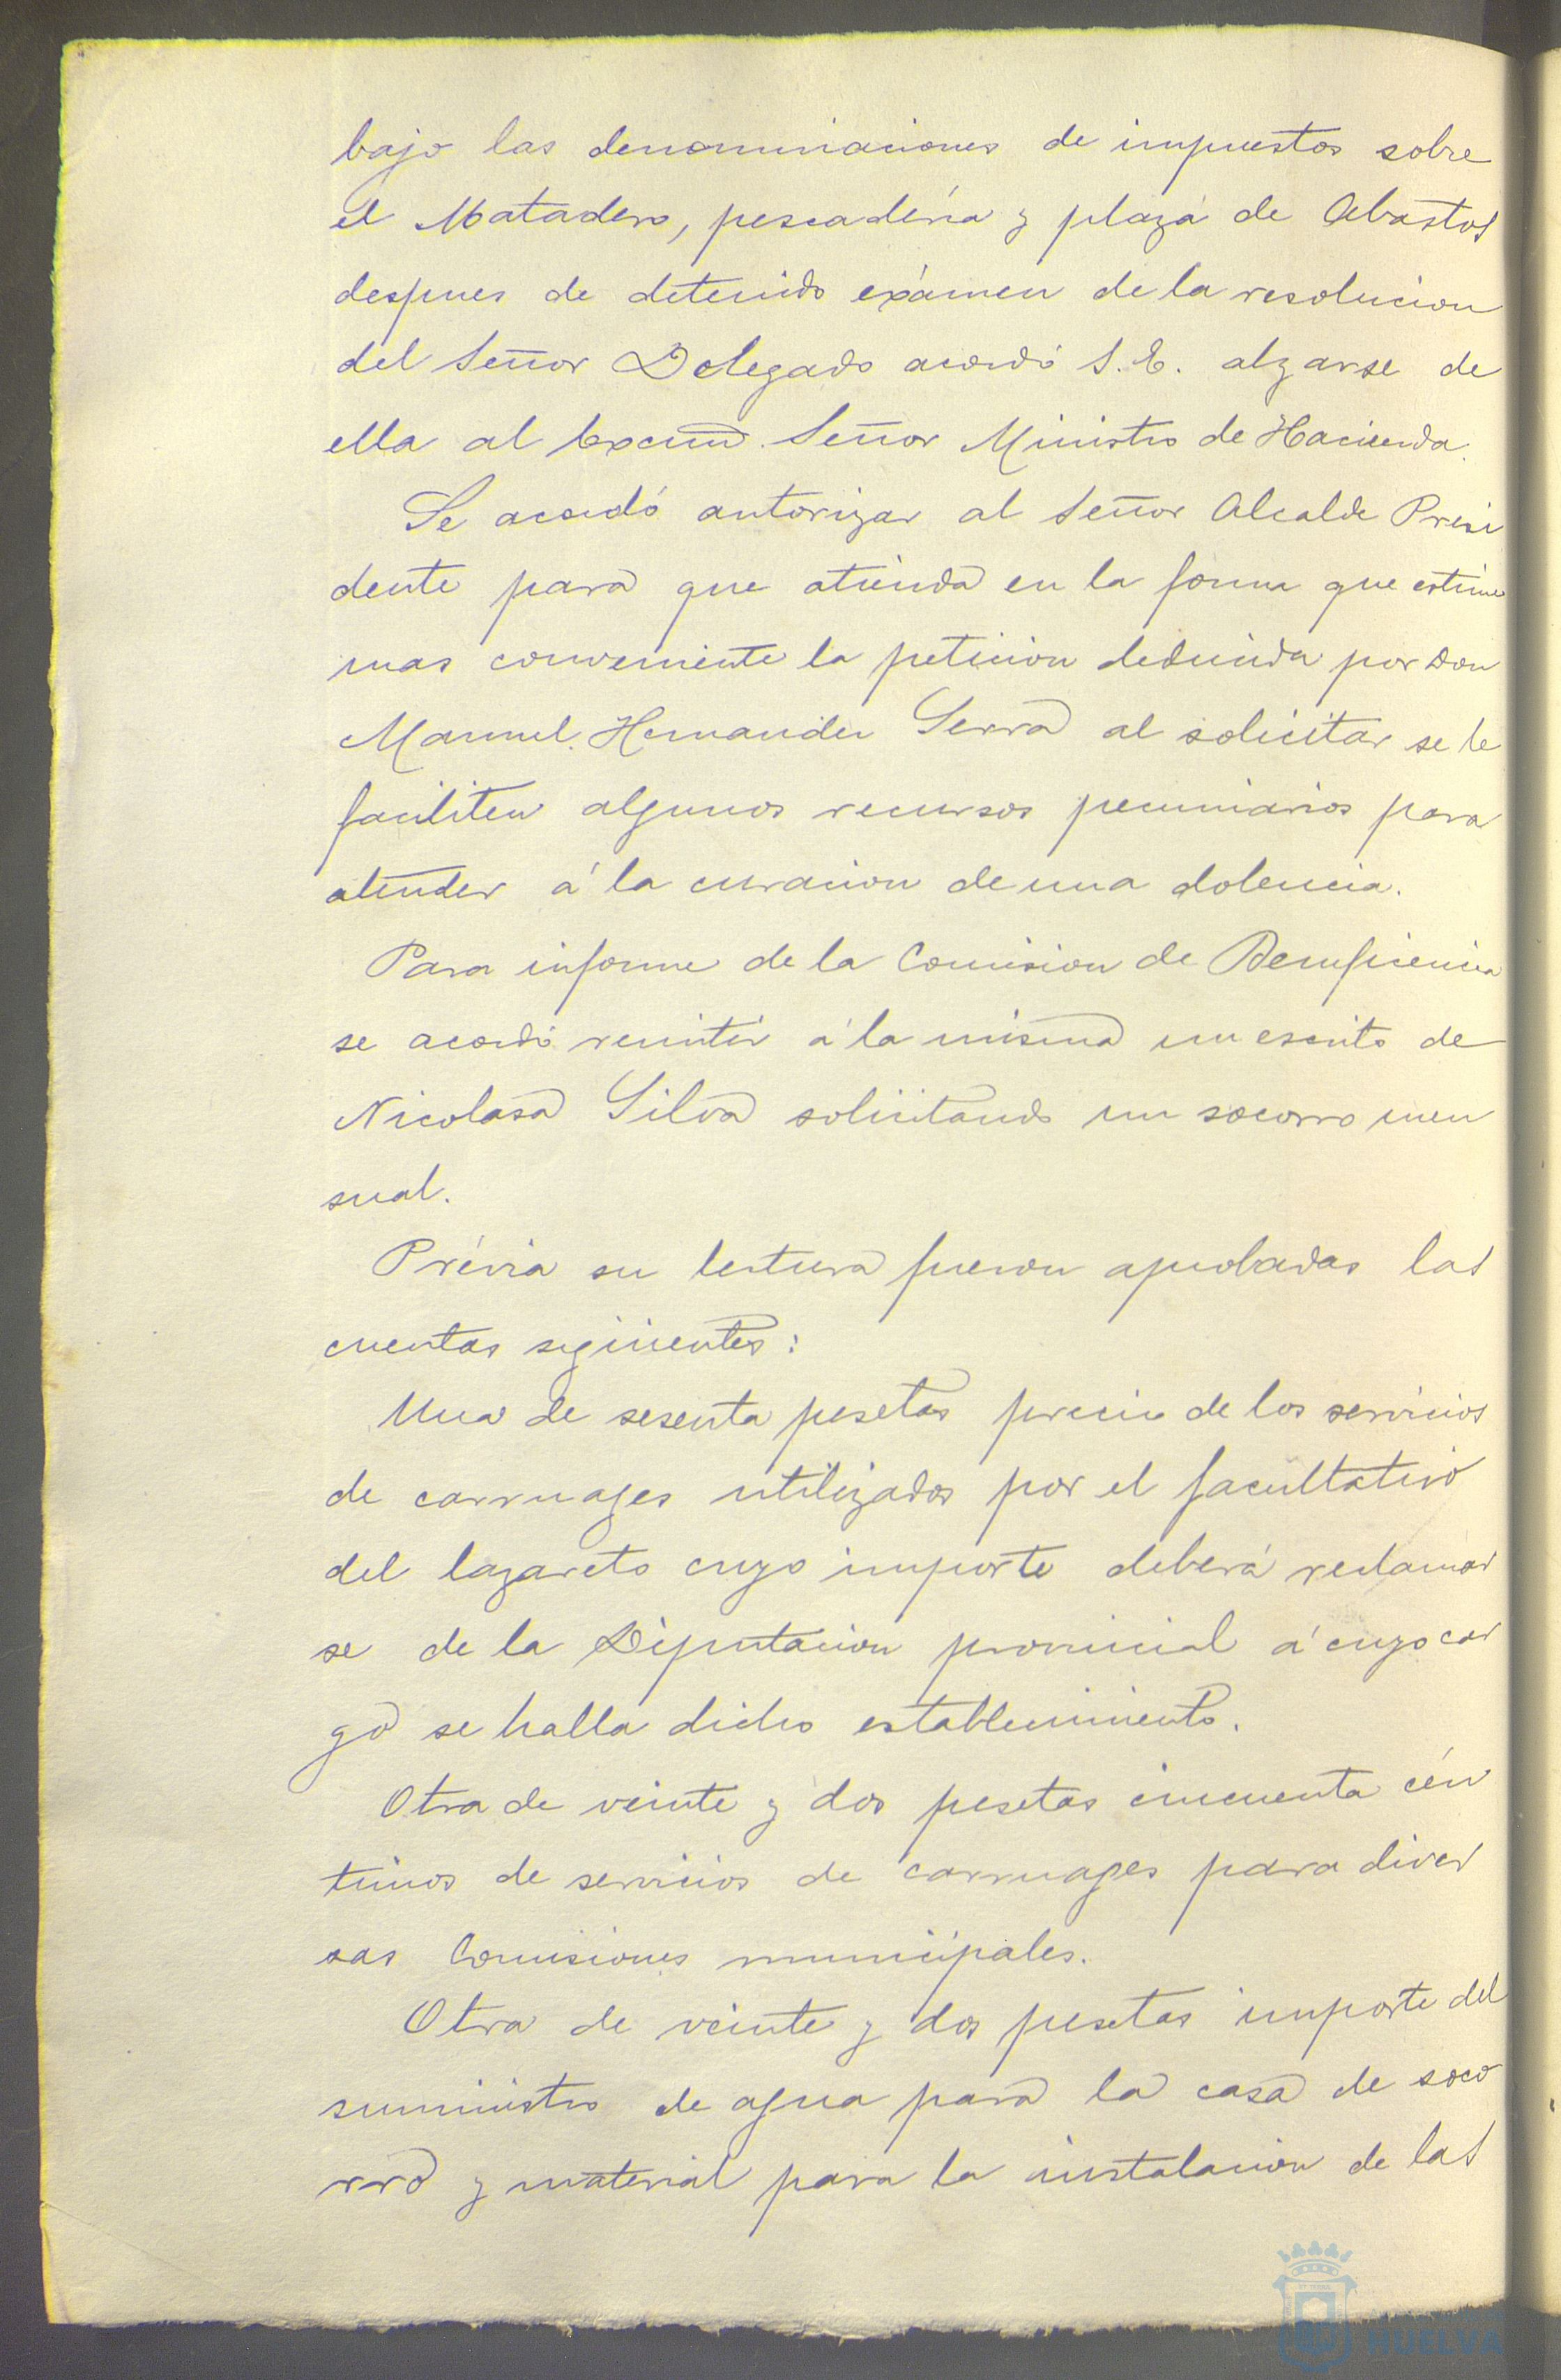 bajo las denominaciones de impuestos sobre
el Matadero, pescadería y plaza de Abastos
despues de detenido exámen de la resolucion
del Señor Delegado acordó S.E. alzarse de
ella al Excmo. Señor Ministro de Hacienda.
Se acordó autorizar al Señor Alcalde Presi
dente para que atienda en la forma que estime
mas conveniente la peticion deducida por Don
Manuel Hernandez Serra al solicitar se le
faciliten algunos recursos pecuniarios para
atender á la curacion de una dolencia.
Para informe de la Comision de Beneficencia
se acordó remitir á la misma un escrito de
Nicolasa Silva solicitando un socorro men
sual.
Prévia su lectura fueron aprobadas las
cuentas sigüientes:
Una de sesenta pesetas precio de los servicios
de carruages utilizados por el facultativo
del lazareto cuyo importe deberá reclamar
se de la Diputacion provincial á cuyo car
go se halla dicho establecimiento.
Otra de veinte y dos pesetas cincuenta cén
timos de servicios de carruages para diver
sas Comisiones municipales.
Otra de veinte y dos pesetas importe del
suministro de agua para la casa de soco
rro y material para la instalacion de las
HUELVA